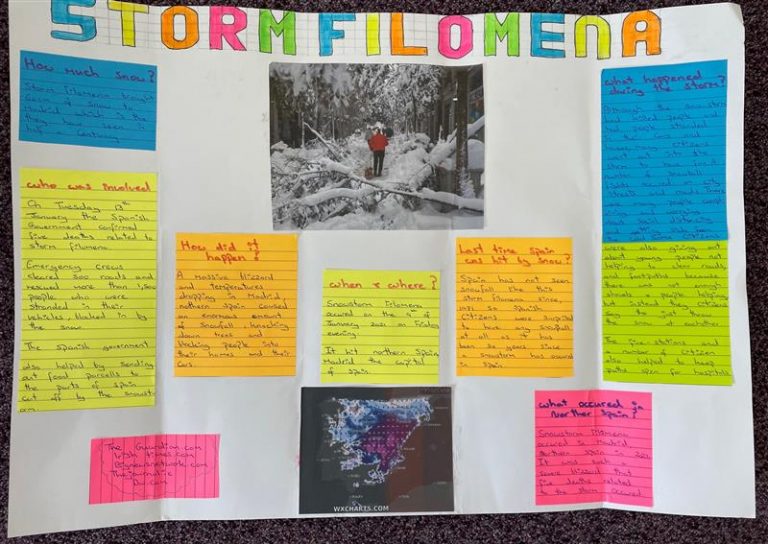 STORM FILOMENA
How much snow?
Storm Filomena brought
60cm of snow to
Madrid which is the
they have seen in
half a century
who was involved
On Tuesday 13th
January the Spanish
Government confirmed
five deaths related to
storm filomena.
Emergency crews
cleared 500 roads and
rescued more than 1,500
people who were
stranded in their
vehicles, blocked in by
the snow.
The spanish government
also helped by sending
out food parcels to
the parts of spain
cut off by the snowst
orm
The Guardian.com
Irish times.com
Bignewsnetwork.com
Thejournal.ie
How did it
happen?
A massive blizzard
and temperatures
dropping in Madrid,
nothern spain caused
an enormous amount
of snowfall, knocking
down trees and
blocking people into
their homes and their
cars.
when & where?
Snowstorm Filomena
occured on the
January 2021 on Friday
evening.
It hit northern Spain,
Madrid the capital
of spain.
WXCHARTS.COM
Last time Spain
was hit by snow?
Spain has not seen
snowfall like this
storm filomena since
1971 so Spanish
Citizens were surprised
to have any snowfall
at all as it has
been 50 years since
a snowstorm has occured
in spain.
what happened
during the storm?
Although the snowstorm
had killed people and
had people stranded
in their cars and
citizens
went out into the
snow
number of snowball
fights
people
and
social distancing
were also giving out
about young people not
helping to clear roads,
and footpaths because
there was not enough
shovels & people helping
but instead they citizens
say to just throw
the snow at eachother
The five stations and
a number of citizen
also helped to keep
paths open for hospitals
what occured in
Norther Spain?
Snowstorm Filomena
occured in Madrid
Northern spain in 2021.
It was such a
severe blizzard that
five deaths related
to the storm occured